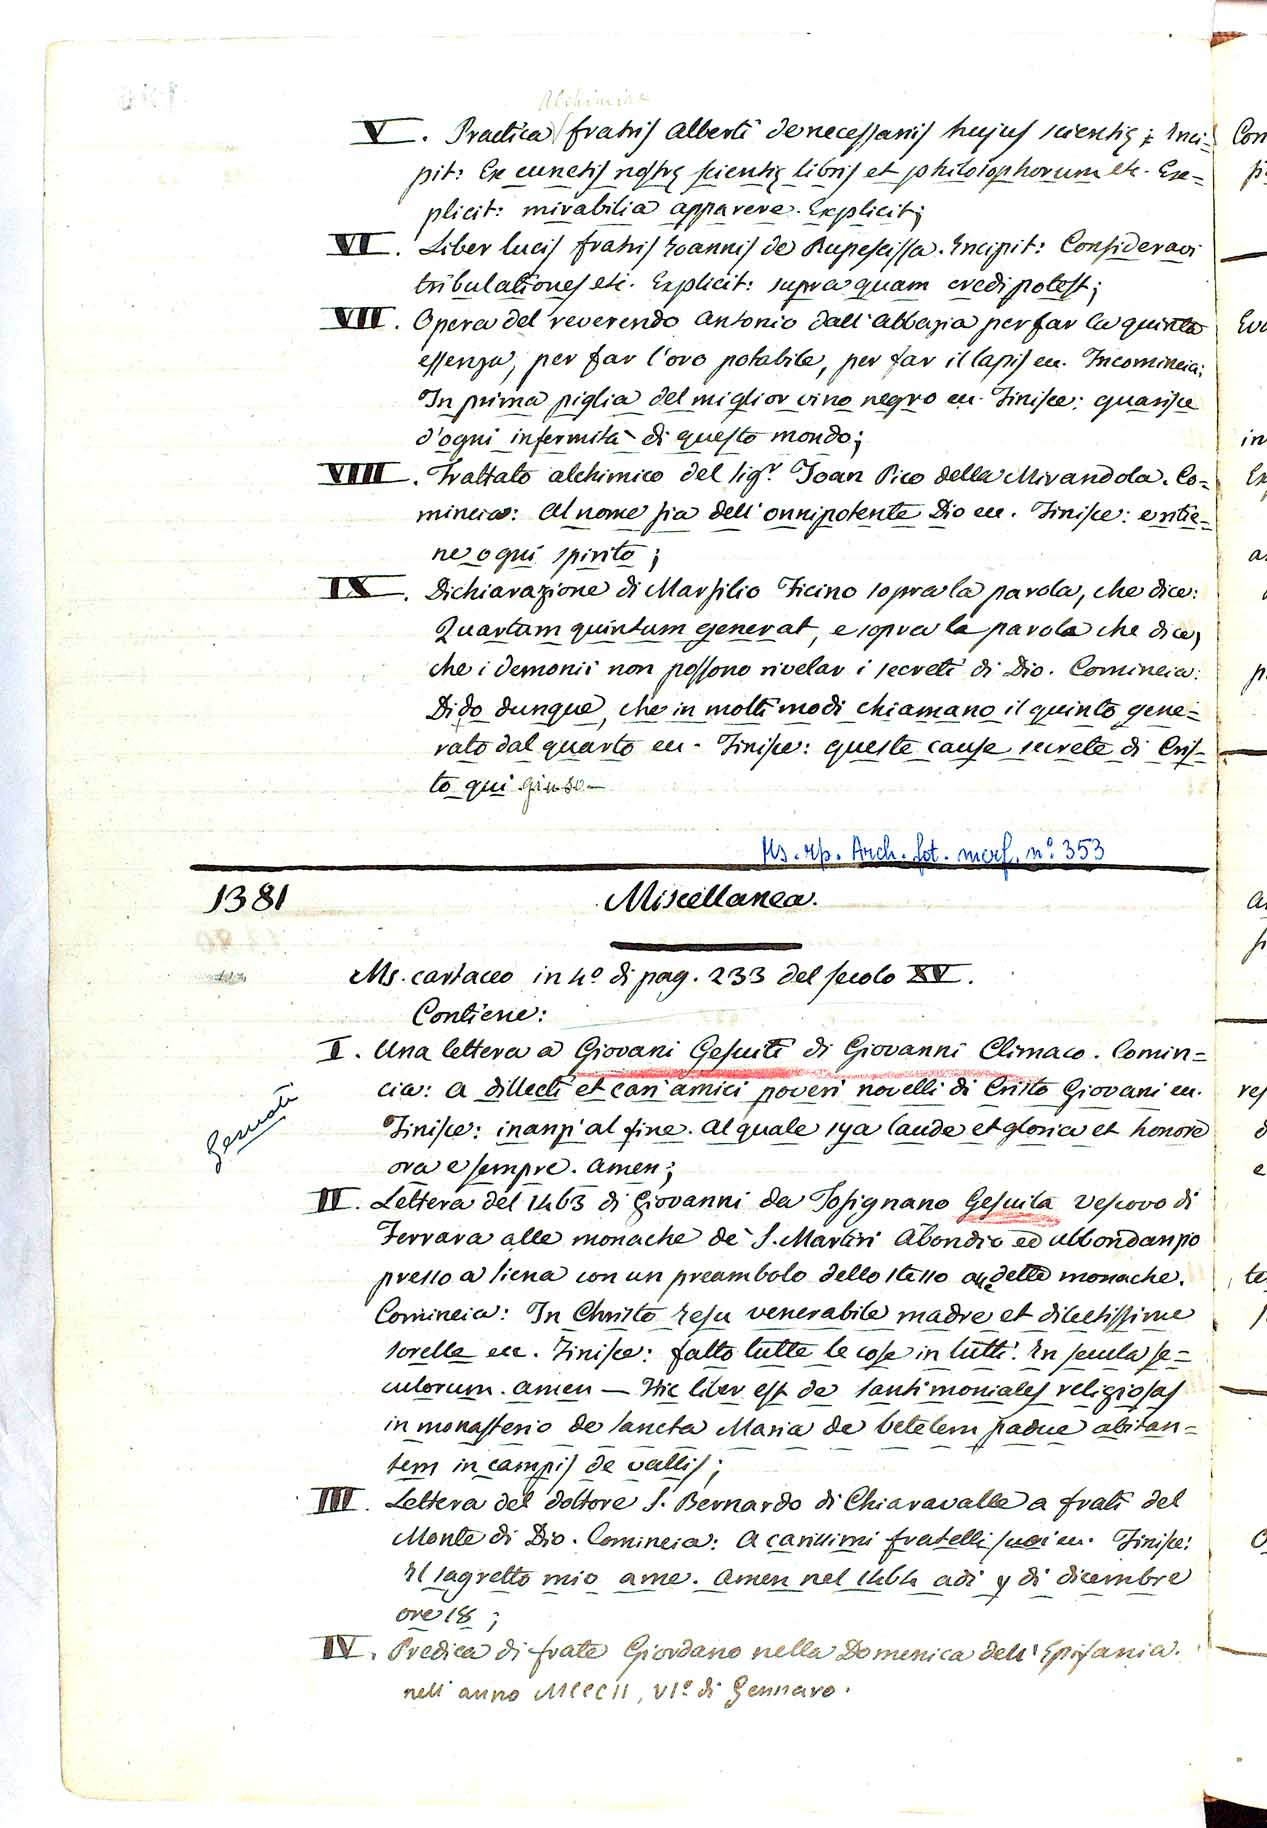 Alchimiae
V. Practica fratris Alberti de necessariis hujus scientię; Inci=
pit: Ex cunctis nostrę scientię libris et philosophorum etc. Ex=
plicit: mirabilia apparere. Explicit;
VI. Liber lucis fratris Ioannis de Rupescissa. Incipit: Consideravi
tribulationes etc. Explicit: supra quam credi potest;
VII. Opera del reverendo Antonio dall'Abbazia per far la quinta
essenza, per far l'oro potabile, per far il lapis ec. Incomincia:
In prima piglia del miglior vino negro ec. Finisce: guarisce
d'ogni infermità di questo mondo;
VIII. Trattato alchimico del sigr. Joan Pico della Mirandola. Co=
mincia: Al nome sia dell'onnipotente Dio ec. Finisce: e ritie=
ne ogni spirito;
IX. Dichiarazione di Marsilio Ficino sopra la parola, che dice:
Quartum quintum generat, e sopra la parola che dice,
che i demonii non possono rivelar i secreti di Dio. Comincia:
Dico dunque, che in molti modi chiamano il quinto gene=
rato dal quarto ec. Finisce: queste cause secrete di Cris=
to qui giuso.
Ms. rip. Arch. fot. microf. n.° 353
1381 Miscellanea.
Ms. cartaceo in 4.° di pag. 233 del secolo XV.
Contiene:
I. Una lettera a Giovani Gesuiti di Giovanni Climaco. Comin=
cia: A dillecti et cari amici poveri novelli di Cristo Giovani ec.
Finisce: inanzi al fine. Al quale sya laude et gloria et honore
ora e sempre. Amen;
Gesuati
II. Lettera del 1463 di Giovanni da Tosignano Gesuita Vescovo di
Ferrara alle monache de' S. Martiri Abondio ed Abbondanzo
presso a Siena con un preambolo dello stesso alle dette monache.
Comincia: In Christo Iesu venerabile madre et dilectissime
sorelle ec. Finisce: fatto tutte le cose in tutti. In secula se=
culorum. Amen — Hic liber est de santimoniales religiosas
in monasterio de sancta Maria de betelem padue abitan=
tem in campis de vallis;
III. Lettera del dottore S. Bernardo di Chiaravalle a frati del
Monte di Dio. Comincia: A carissimi fratelli suoi ec. Finisce:
El sagretto mio a me. Amen nel 1464 adi 9 di dicembre
ore 18;
IV. Predica di frate Giordano nella Domenica dell'Epifania.
nell'anno MCCCII, VI.° di Gennaro.